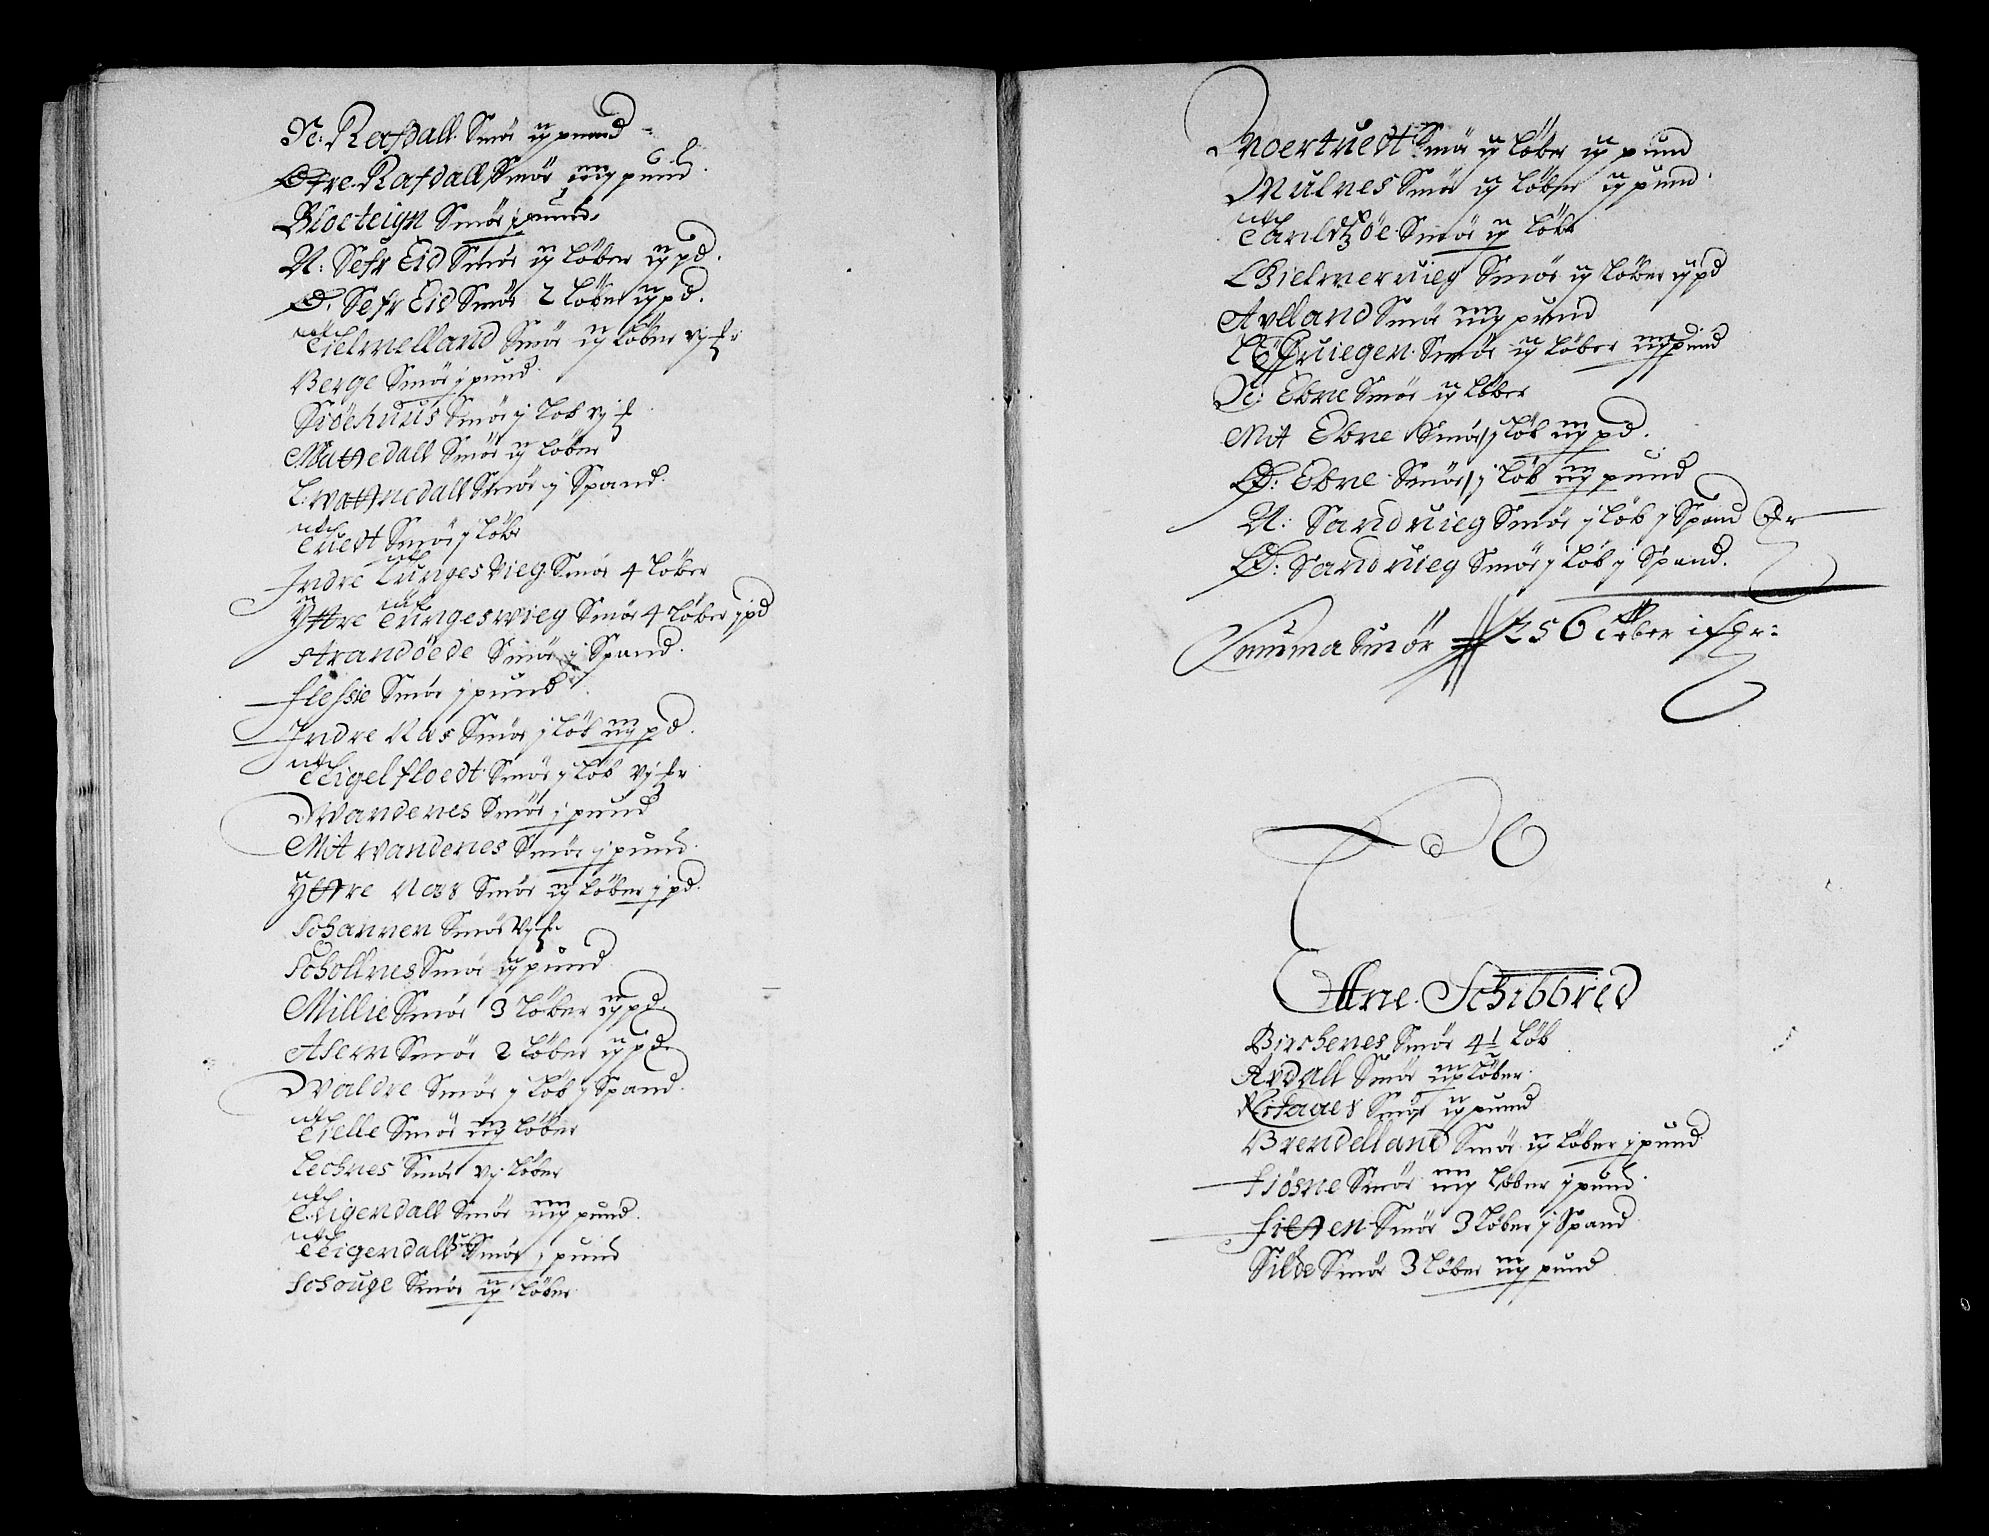 N: Rafdall Smør ij pund
Øfre Rafdall Smør iiij pund
Bloeteign Smør j pund
N: Sefr Eid Smør ij løber ij pd.
Ø. Sefr Eid Smør 2 løber ij pd.
Tielmelland Smør ij løber vj
Berge Smør j pund
Siøehuus Smør j løb vj
Mattedall Smør ij løber
L: Wattnedall Smør j Spand.
Tuedt Smør j løb
Indre Tunges Vieg Smør 4 løber
Yttre Tungeswieg Smør 4 løber j pd
Strandøede Smør j Spand.
Flessie Smør j pund
Indre Nes Smør j løb iij pd.
Tigelfloedt Smør j løb vj
Wandenes Smør j pund
Mit wandenes Smør j pund.
Yttre Nes Smør ij løber j pd.
Schannen Smør vj
Schollnes Smør ij pund
Millie Smør 3 løber ij pd.
Asern Smør 2 løber ij pd.
Waldre Smør j løb j Spand.
Tielle Smør iij løber
Lechnes Smør vj løber
Eigendall Smør iiij pund.
Eigendall Smør j pund
Schouge Smør ij løber
Noertuedt Smør ij løber ij pund
Mulnes Smør ij løber ij pund.
Carldtzøe Smør ij løb
Bielmervieg Smør ij løber ij pd
Avlland Smør iiij pund
Smør ij løber iiij pund
N: Ebne Smør ij løber
Mit Ebne Smør j løb iij pd.
Ø: Ebne Smør j løb iij pund
N: Sandvieg Smør j løb j Spand
Ø: Sandvieg Smør j løb j Spand.
Summa Smør 256 løber
Ettne Schibbred
Birchenes Smør 4½ løb
Ardall Smør iij løber.
Smør ij pund
Brendelland Smør ij løber j pund
Fiøsne Smør iiij løber j pund.
Fitten Smør 3 løber j Spand
Silde Smør 3 løber iij pund